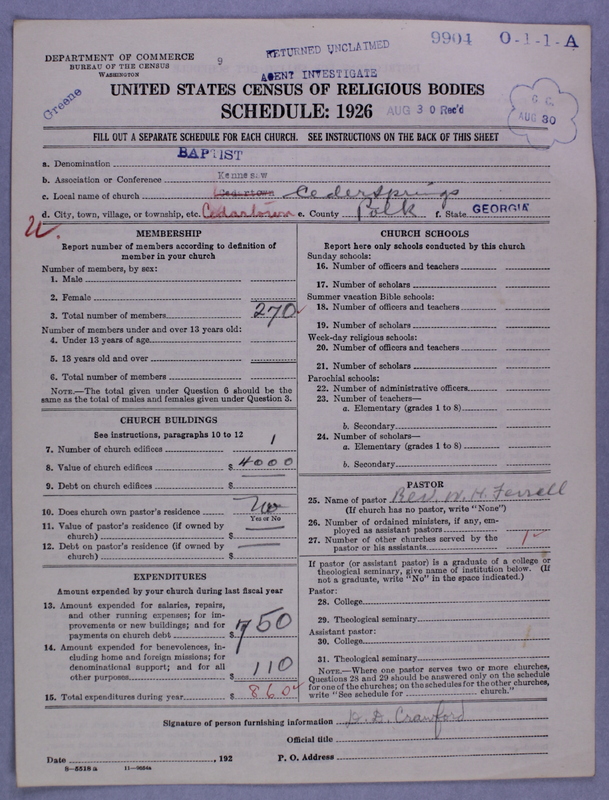 DEPARTMENT OF COMMERCE
BUREAU OF THE CENSUS
WASHINGTON
9
RETURNED UNCLAIMED
AGENT INVESTIGATE
9904 O-1-1-A
Greene
UNITED STATES CENSUS OF RELIGIOUS BODIES
SCHEDULE: 1926
AUG 30 Rec'd
C. C.
AUG 30
FILL OUT A SEPARATE SCHEDULE FOR EACH CHURCH. SEE INSTRUCTIONS ON THE BACK OF THIS SHEET
a. Denomination BAPTIST
b. Association or Conference Kennesaw
c. Local name of church Cedartown Cedar Springs
d. City, town, village, or township, etc. Cedartown e. County Polk f. State GEORGIA
MEMBERSHIP
Report number of members according to definition of
member in your church
Number of members, by sex:
1. Male
2. Female
3. Total number of members 270
Number of members under and over 13 years old:
4. Under 13 years of age
5. 13 years old and over
6. Total number of members
NOTE.—The total given under Question 6 should be the
same as the total of males and females given under Question 3.
CHURCH BUILDINGS
See instructions, paragraphs 10 to 12
7. Number of church edifices 1
8. Value of church edifices $ 4000
9. Debt on church edifices $
10. Does church own pastor's residence No
Yes or No
11. Value of pastor's residence (if owned by
church) $
12. Debt on pastor's residence (if owned by
church) $
EXPENDITURES
Amount expended by your church during last fiscal year
13. Amount expended for salaries, repairs,
and other running expenses; for im-
provements or new buildings; and for
payments on church debt $ 750
14. Amount expended for benevolences, in-
cluding home and foreign missions; for
denominational support; and for all
other purposes $ 110
15. Total expenditures during year $ 860
CHURCH SCHOOLS
Report here only schools conducted by this church
Sunday schools:
16. Number of officers and teachers
17. Number of scholars
Summer vacation Bible schools:
18. Number of officers and teachers
19. Number of scholars
Week-day religious schools:
20. Number of officers and teachers
21. Number of scholars
Parochial schools:
22. Number of administrative officers
23. Number of teachers—
a. Elementary (grades 1 to 8)
b. Secondary
24. Number of scholars—
a. Elementary (grades 1 to 8)
b. Secondary
PASTOR
25. Name of pastor Rev. W. H. Ferrell
(If church has no pastor, write "None")
26. Number of ordained ministers, if any, em-
ployed as assistant pastors
27. Number of other churches served by the
pastor or his assistants 1
If pastor (or assistant pastor) is a graduate of a college or
theological seminary, give name of institution below. (If
not a graduate, write "No" in the space indicated.)
Pastor:
28. College
29. Theological seminary
Assistant pastor:
30. College
31. Theological seminary
NOTE.—Where one pastor serves two or more churches,
Questions 28 and 29 should be answered only on the schedule
for one of the churches; on the schedules for the other churches,
write "See schedule for church."
Signature of person furnishing information D. Crawford
Official title
Date , 192 P. O. Address
8—5518 a 11—9654a